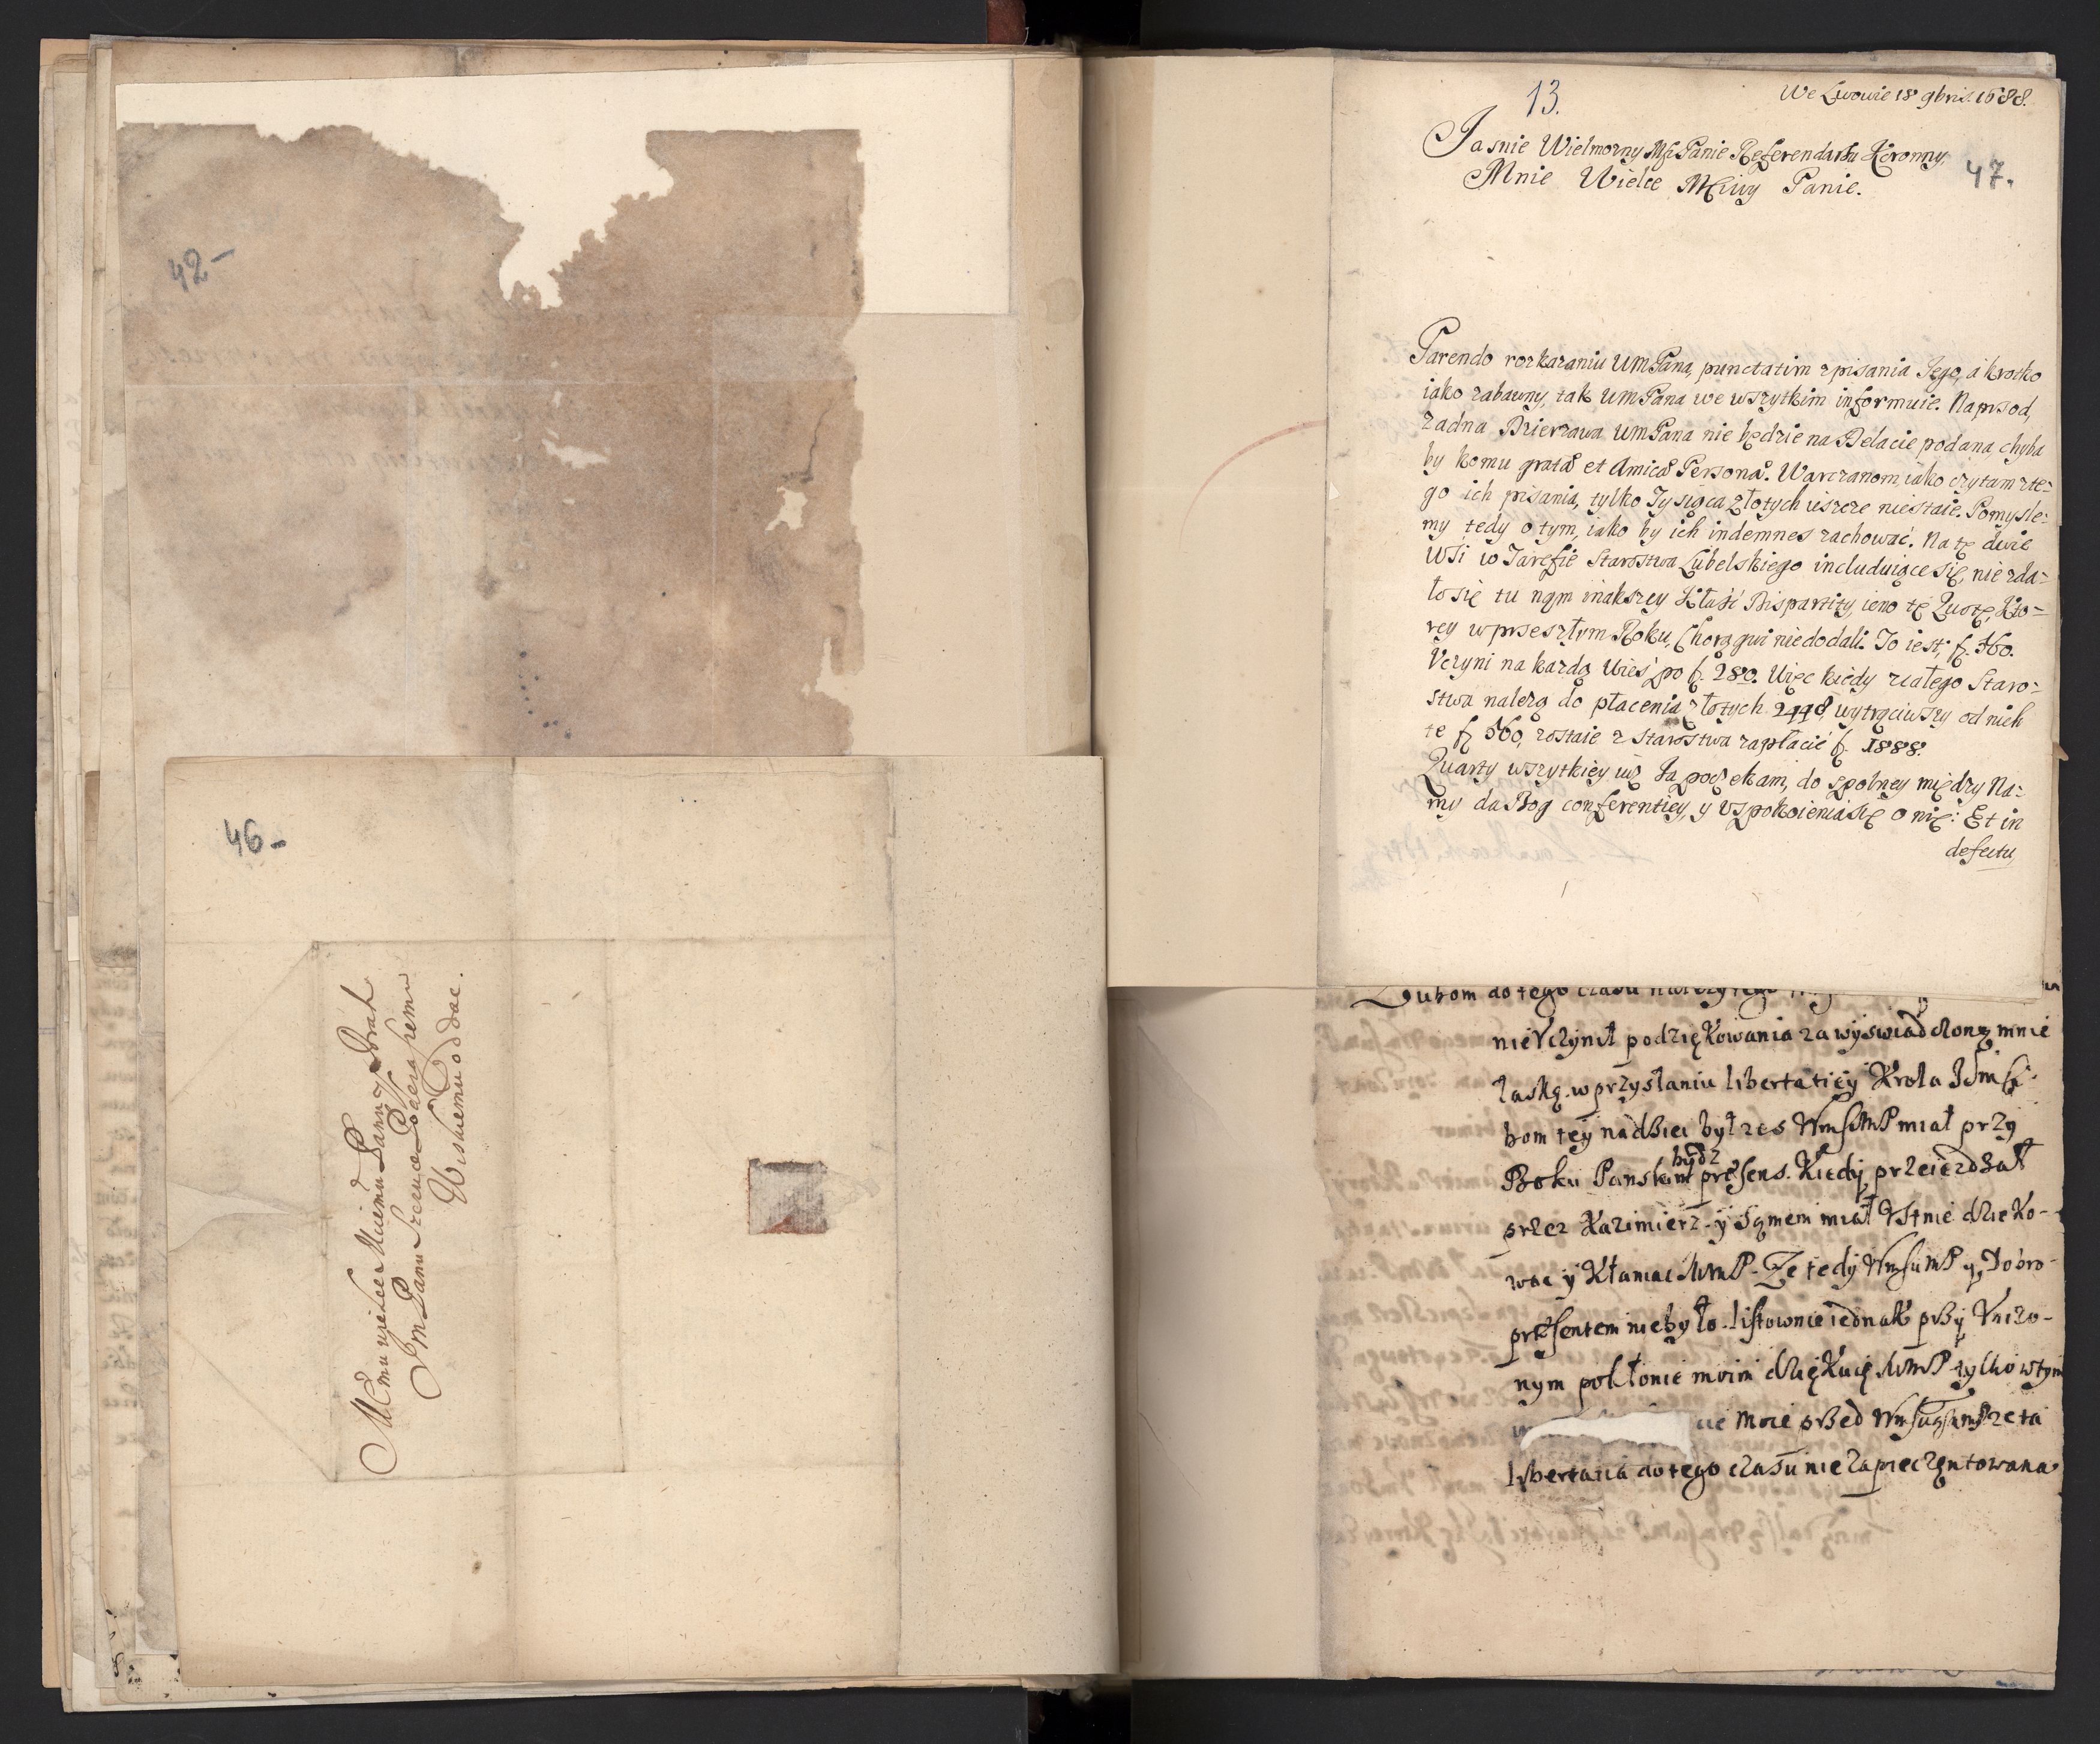 42-
46-
Memu wielce Memu Panu y Brah
Jm Panu
Wisnemu oddac.
13.
We Lwowie 18 9bris 1688.
Jasnie Wielmozny Msci Panie Referendarzu Koronny,
Mnie Wielce Mciwy Panie.
47.
Parendo rozkazaniu UmPana, punctatim z pisania Jego, á krotko
iako zabawny, tak UmPana we wszytkim informuie. Naprzod,
zadna Dzierzawa UmPana nie będzie na Delacie podana, chyba
by komu gratâ et Amicâ Personâ. Warczanom, iako czytam z te-
go ich pisania, tylko Tysiąca złotych ieszcze niestaie. Pomysle-
my tedy o tym, iako by ich indemnes zachować. Na tę dwie
Wsi w Tarefie Starostwa Lubelskiego includuiące się, nie zda-
ło się tu nąm inakszey kłaść Dispartity, ieno tę Quotę, kto-
rey w przeszłym Roku, Chorągwi niedodali. To iest, f. 560.
Vczyni na kazdą Wieś po f. 280. Więc kiedy z całego Staro-
stwa nalezą do płacenia złotych 2448, wytrąciwszy od nich
te f. 560, zostaie z Starostwa zapłacić f. 1888.
Quarty wszytkiey iuż Ja poczekam, do spolney między Na-
my da Bog conferentiey, y vspokoienia się o nię: Et in
defectu
do tego czasu
nie Vczynił podziękowania za wyswiadczoną mnie
łaskę w przysłaniu libertatiey Krola Jmsci
bom tey nadziei był zes miał przy
Boku Panskim bydz præsens. Kiedy przeiezdzał
przez Kazimierz y Sąmem miał Vstnie dzięko-
wac y Kłaniac Ze tedy y Dobro-
præsentem niebyło. listownie iednak przy Vnizo-
nym pokłonie moim dziękuię tylko wtym
moie przed ze ta
libertatia do tego czasu nie zapieczętowana